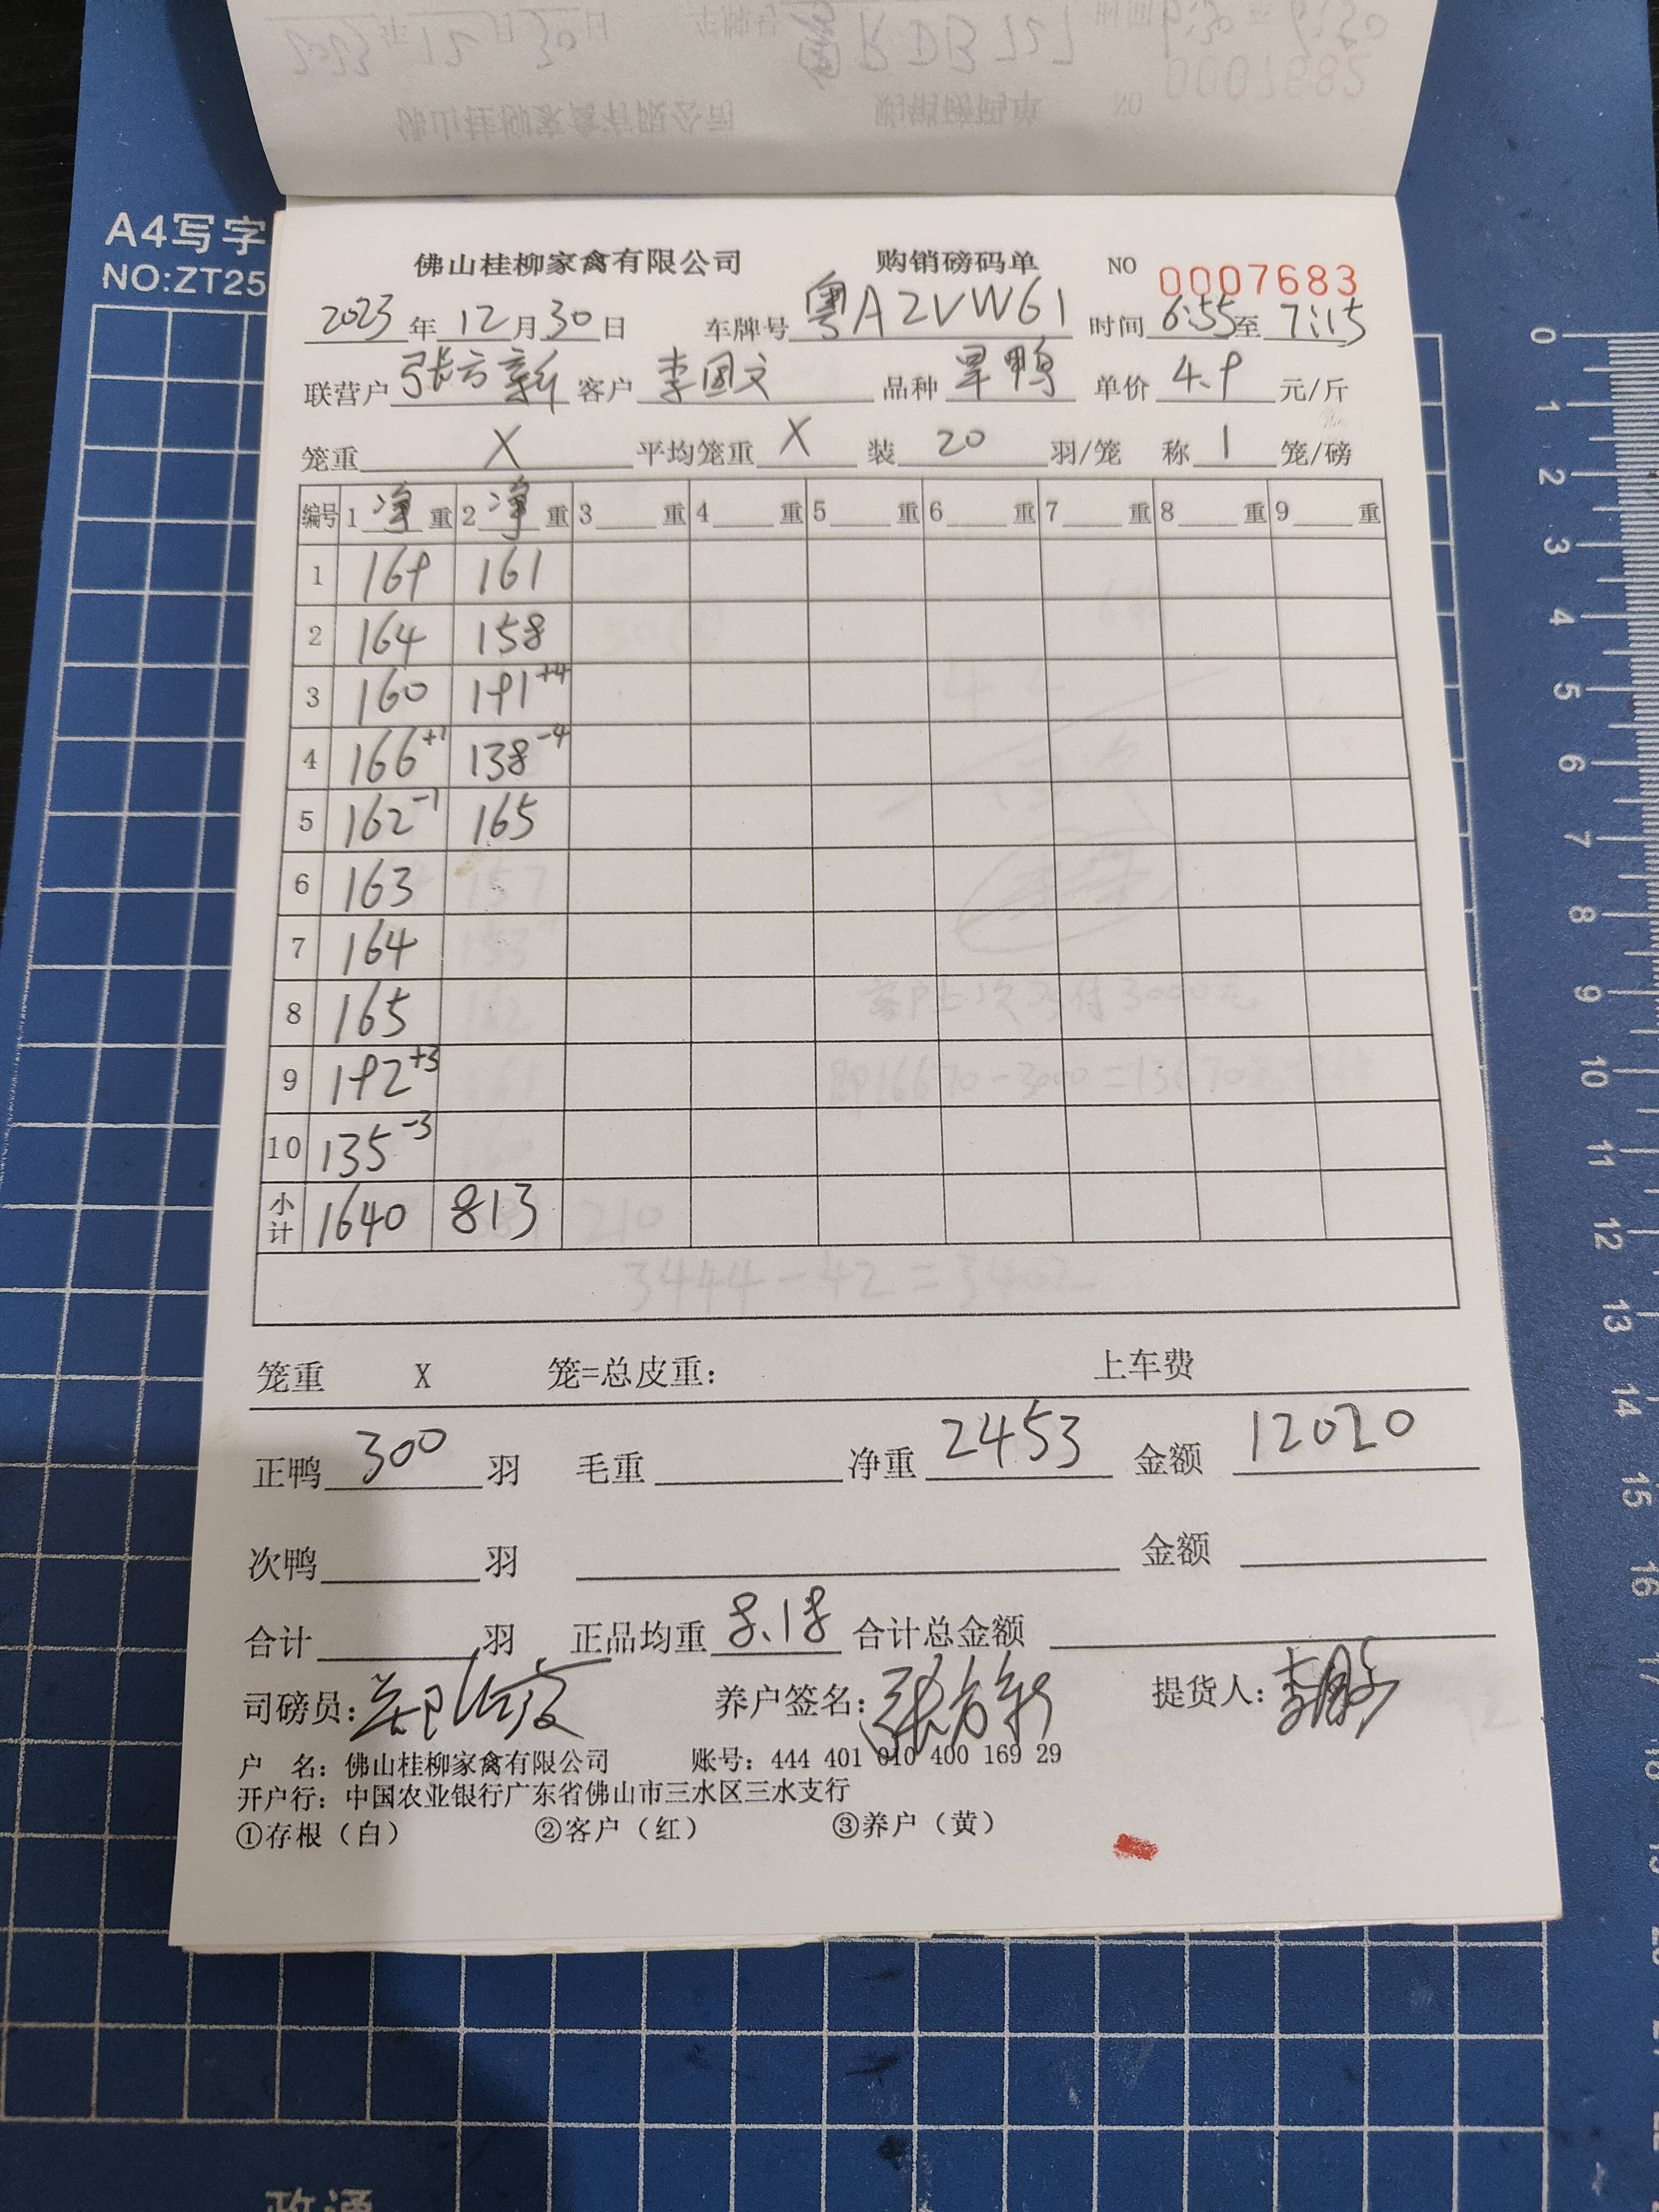 A4写字
NO:ZT25
佛山桂柳家禽有限公司 购销磅码单 NO 0007683
2023年12月30日 车牌号 粤A2VW61 时间 6:55至7:15
联营户 张方新 客户 李国文 品种 旱鸭 单价 4.9 元/斤
笼重 X 平均笼重 X 装 20 羽/笼 称 1 笼/磅
编号 1 净 重 2 净 重 3 重 4 重 5 重 6 重 7 重 8 重 9 重
1 169 161
2 164 158
3 160 191+4
4 166+1 138-4
5 162-1 165
6 163
7 164
8 165
9 192+3
10 135-3
小计 1640 813
笼重 X 笼=总皮重: 上车费
正鸭 300 羽 毛重 净重 2453 金额 12020
次鸭 羽 金额
合计 羽 正品均重 8.18 合计总金额
司磅员: 养户签名: 张方新 提货人:
户 名: 佛山桂柳家禽有限公司 账号: 444 401 010 400 169 29
开户行: 中国农业银行广东省佛山市三水区三水支行
①存根（白） ②客户（红） ③养户（黄）
0
1
2
3
4
5
6
7
8
9
10
11
12
13
14
15
16
17
18